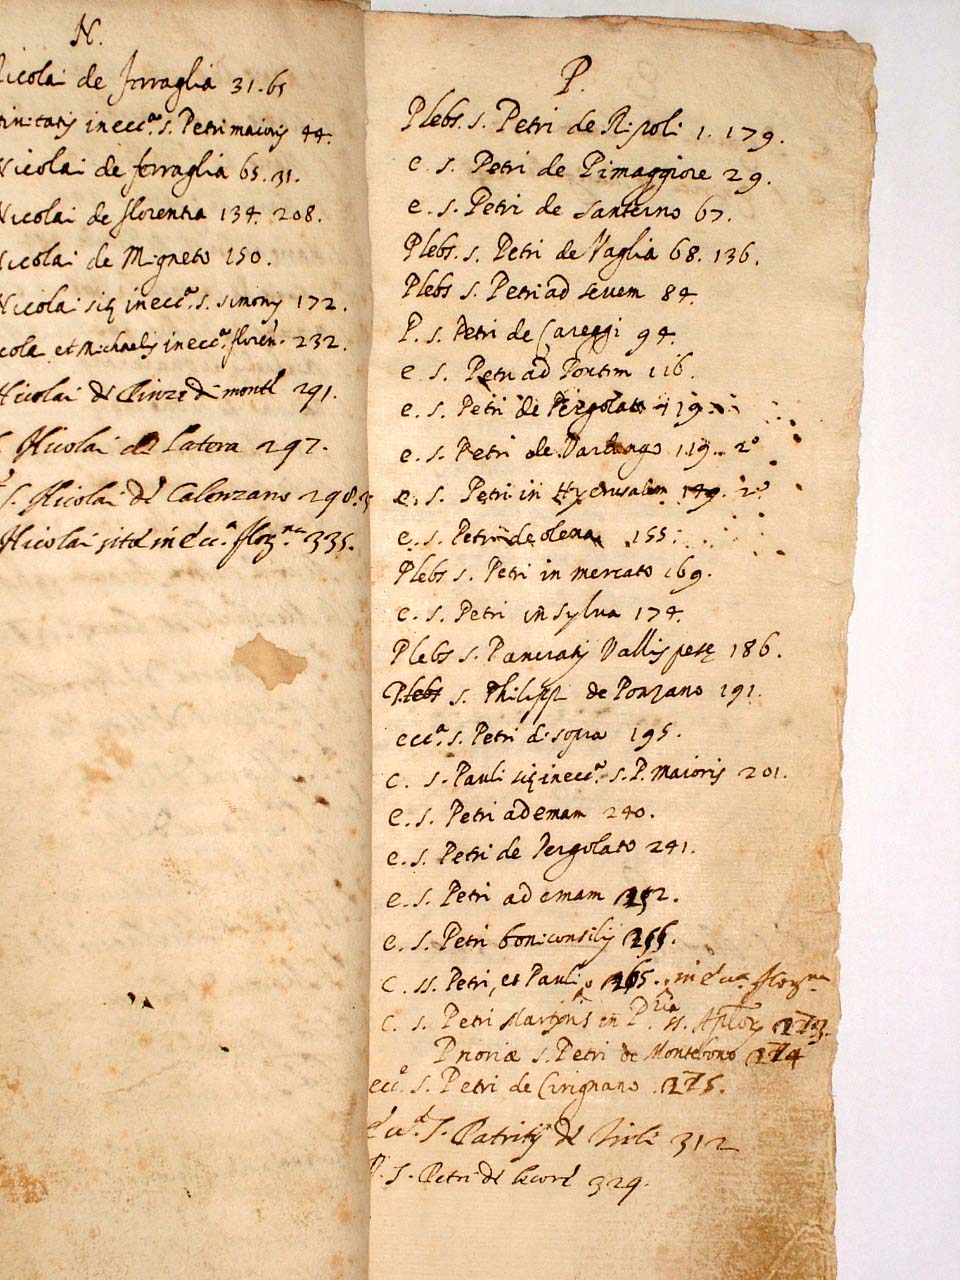 N.
Nicolai de forraglia 31.65
initatis in ecc.ª s. Petri maioris 44.
Nicolai de forraglia 65.31.
Nicolai de florentia 134. 208.
Nicolai de Migneto 150.
Nicolai in ecc.ª s. simonis 172.
cola et Michaelis in ecc.ª floren. 232.
Nicolai de monti 291.
Nicolai de Latera 297.
S. Nicolai de Calenzano 298.
Nicolai in ecc.ª 335.
P.
Plebs. s. Petri de Ripoli 1. 179.
e. s. Petri de Pimaggiore 29.
e. s. Petri de Santerno 67.
Plebs. s. Petri de Vaglia 68. 136.
Plebs s. Petri ad sevem 84.
P. s. Petri de Careggi 94.
e. s. Petri ad Pontem 116.
e. s. Petri de Pergolato 119.
e. s. Petri de 119. 2º
e. s. Petri in Hyerusalem 149. 2º
e. s. Petri de olena 155.
Plebs s. Petri in mercato 169.
e. s. Petri in sylva 174.
Plebs s. Pancratij Vallis pese 186.
Plebs s. Philippi de Ponzano 191.
ecc.ª s. Petri di sopra 195.
C. s. Pauli in ecc.ª s. P. maioris 201.
e. s. Petri ad emam 240.
e. s. Petri de Pergolato 241.
e. s. Petri ad emam 252.
e. s. Petri boni consilij 255.
C. ss. Petri, et Pauli 265. in
C. s. Petri Martyris in ss. 273.
Prioriæ s. Petri de Montebono 274
ecc.ª s. Petri de Cirignano 275.
S. Patritij de 312
P. S. Petri de 329.